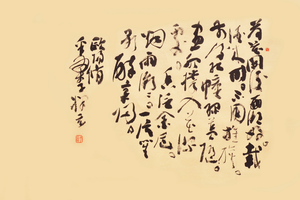 荷花開後西湖好載
酒來時不用旌旗
前後紅幢綠蓋隨
畫船撐入花深
處香泛金卮
烟雨微微一片笙
歌醉里歸
歐陽脩